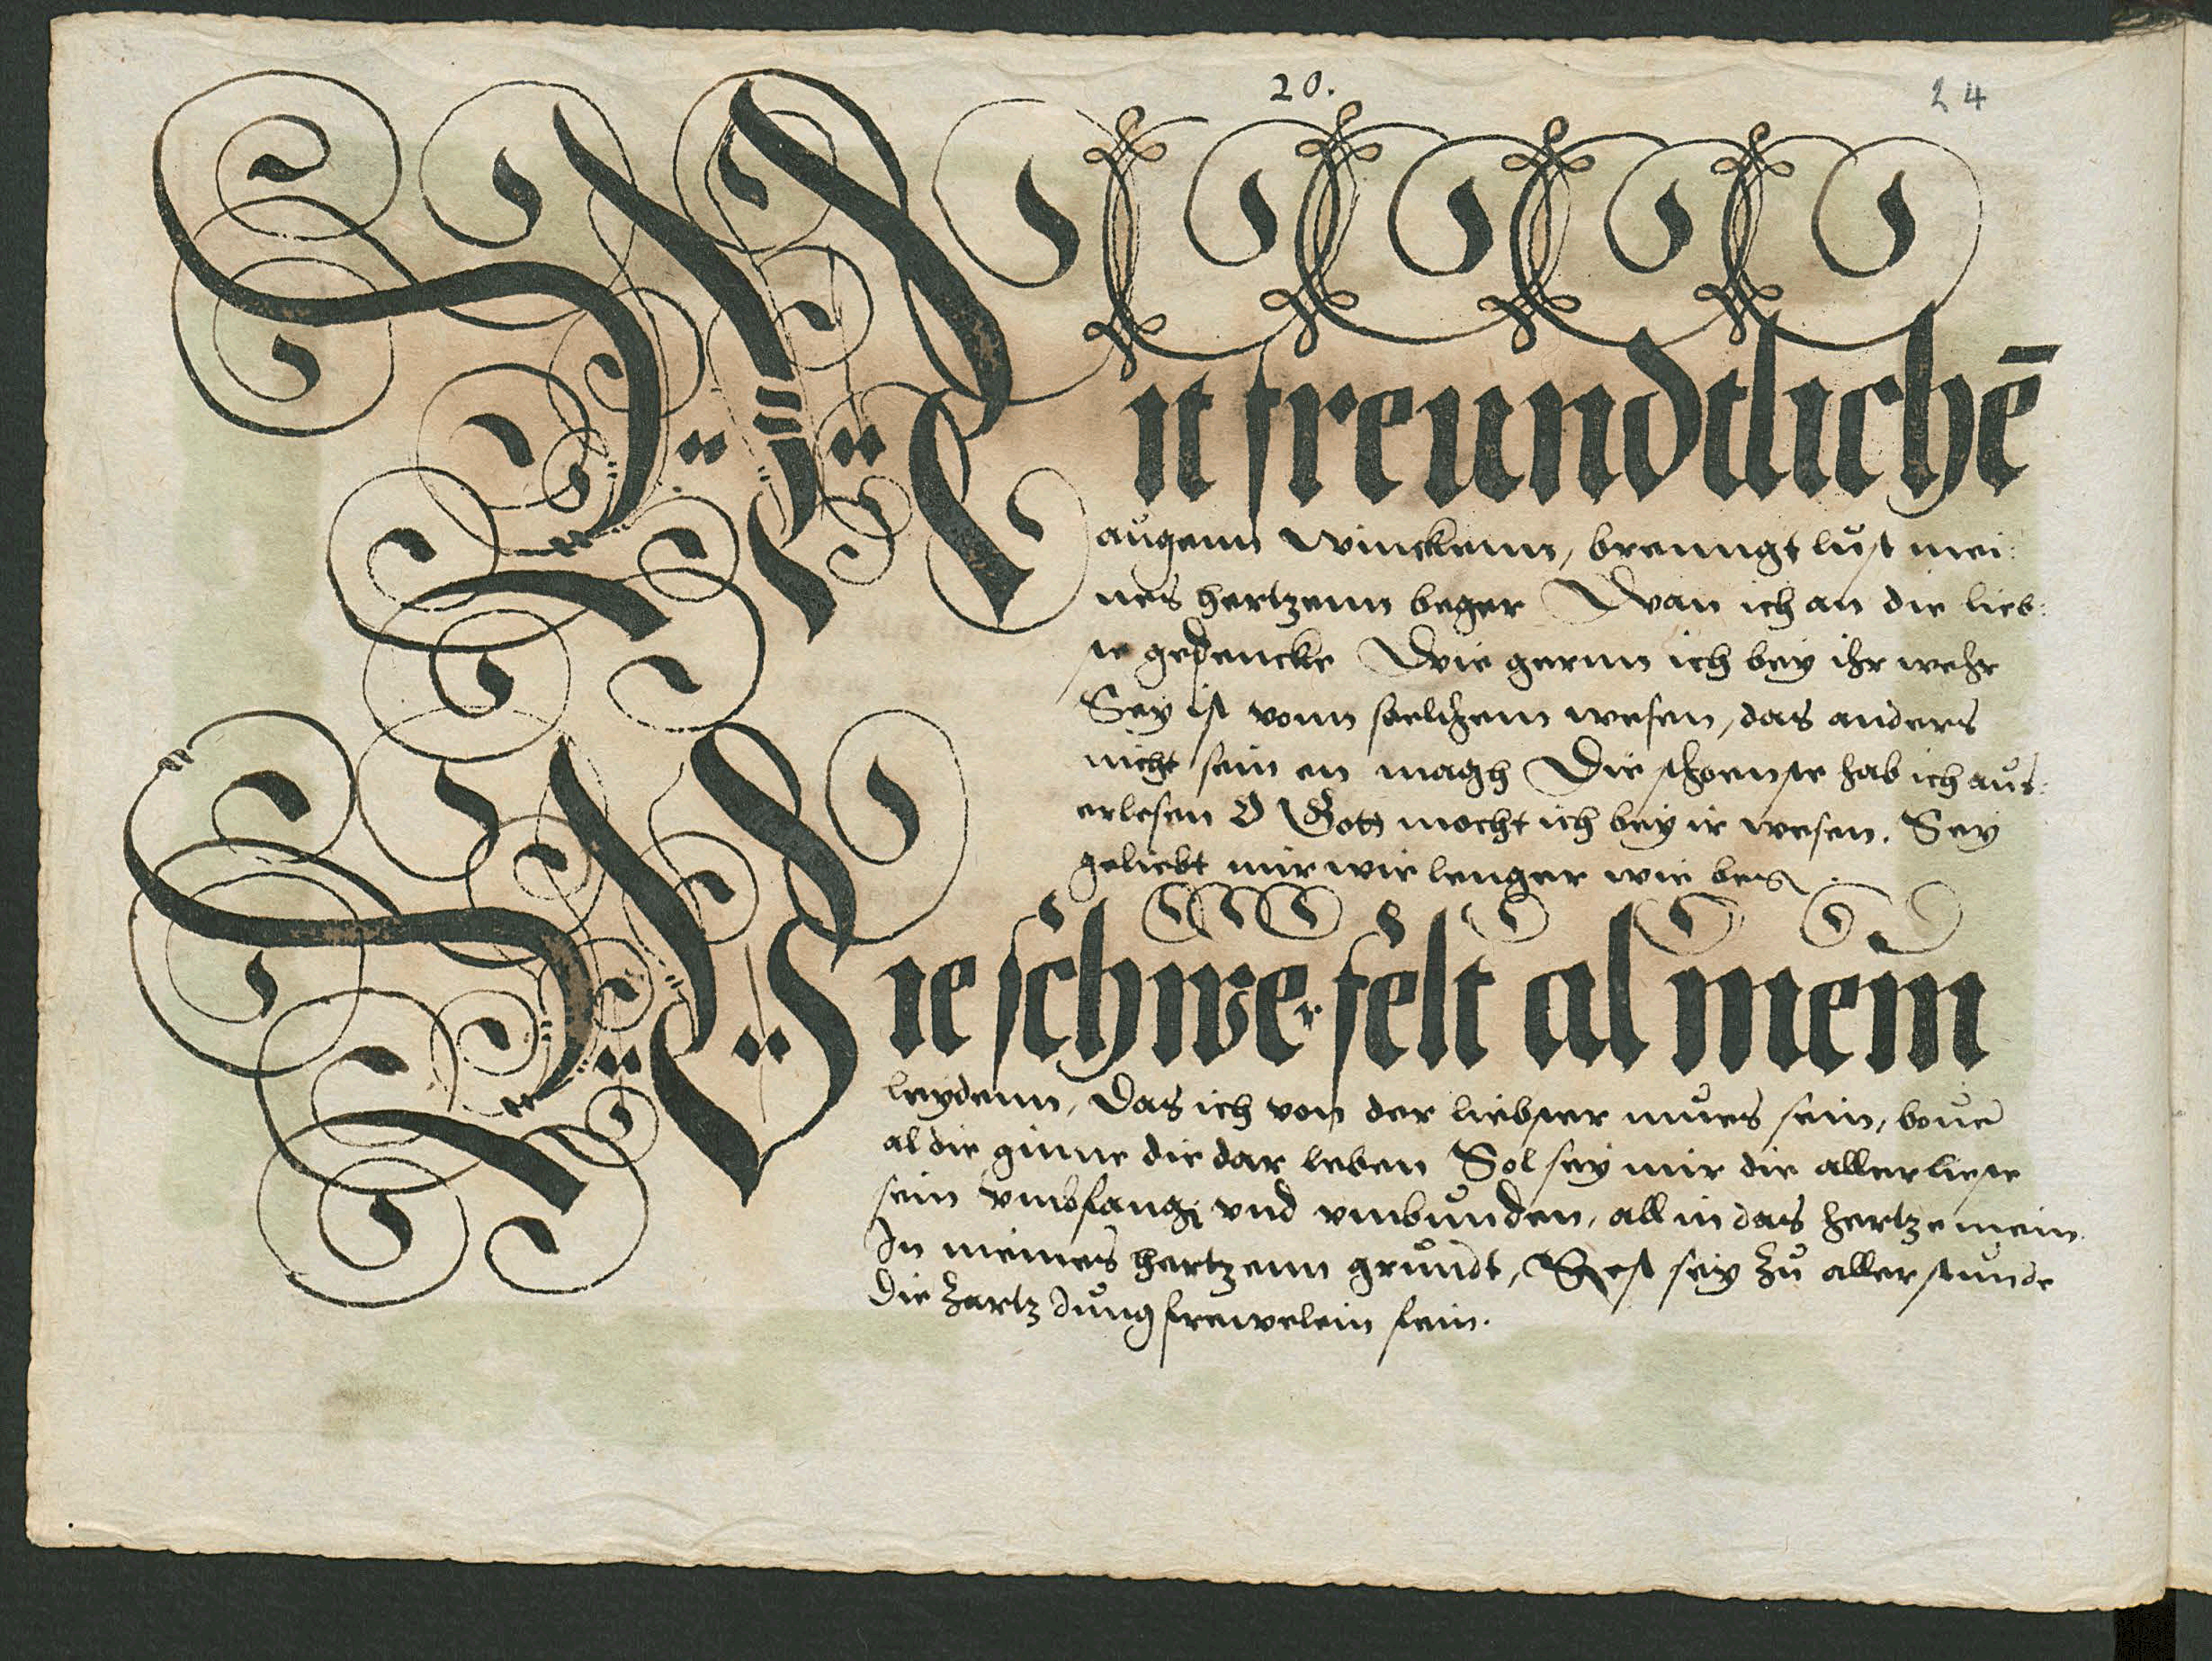 20.
24
Mit freundtlichē
augenn winckenn, brenngt lust mei:
nes hertzenn beger Wan ich an die lieb:
ste gedencke Wie gernn ich bey ihr wehr
Sey ist vonn soelchem wesen, das anders
nicht sein en magh Die schoenste hab ich aus:
erlesen O Gott mocht ich bey ir wesen. Sey
geliebt mir wie lenger wie bes
Wie schwer felt al mein
leydenn, Das ich von der liebster mues sein, boue
al die ginne die dar leben Sol sey mir die allerlieste
sein vmbfangē vnd vmbunden, all in das hertze mein.
In meines hertzenn grundt, Rest sey zu aller stunde
die zartz Jungfrewelein fein.